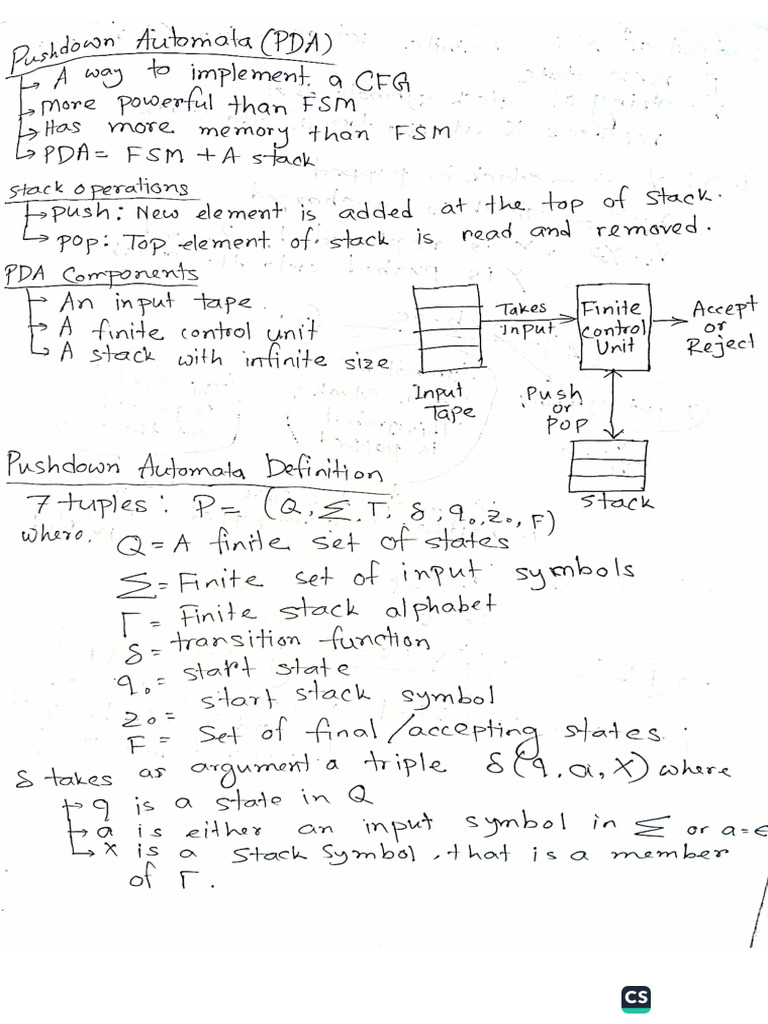 Pushdown Automata (PDA)
↳ A way to implement a CFG
↳ More powerful than FSM
↳ Has more memory than FSM
↳ PDA = FSM + A stack
Stack Operations
↳ push: New element is added at the top of stack.
↳ pop: Top element of stack is read and removed.
PDA Components
↳ An input tape
↳ A finite control unit
↳ A stack with infinite size
Takes
Input
Finite
Control
Unit
Accept
or
Reject
Input
Tape
Push
or
POP
Stack
Pushdown Automata Definition
7 tuples: P = (Q, Σ, Γ, δ, q₀, z₀, F)
where,
Q = A finite set of states
Σ = Finite set of input symbols
Γ = Finite stack alphabet
δ = transition function
q₀ = start state
z₀ = start stack symbol
F = Set of final/accepting states.
δ takes as argument a triple δ(q, a, X) where
↳ q is a state in Q
↳ a is either an input symbol in Σ or a = ϵ
↳ X is a Stack Symbol, that is a member
of Γ.
CS